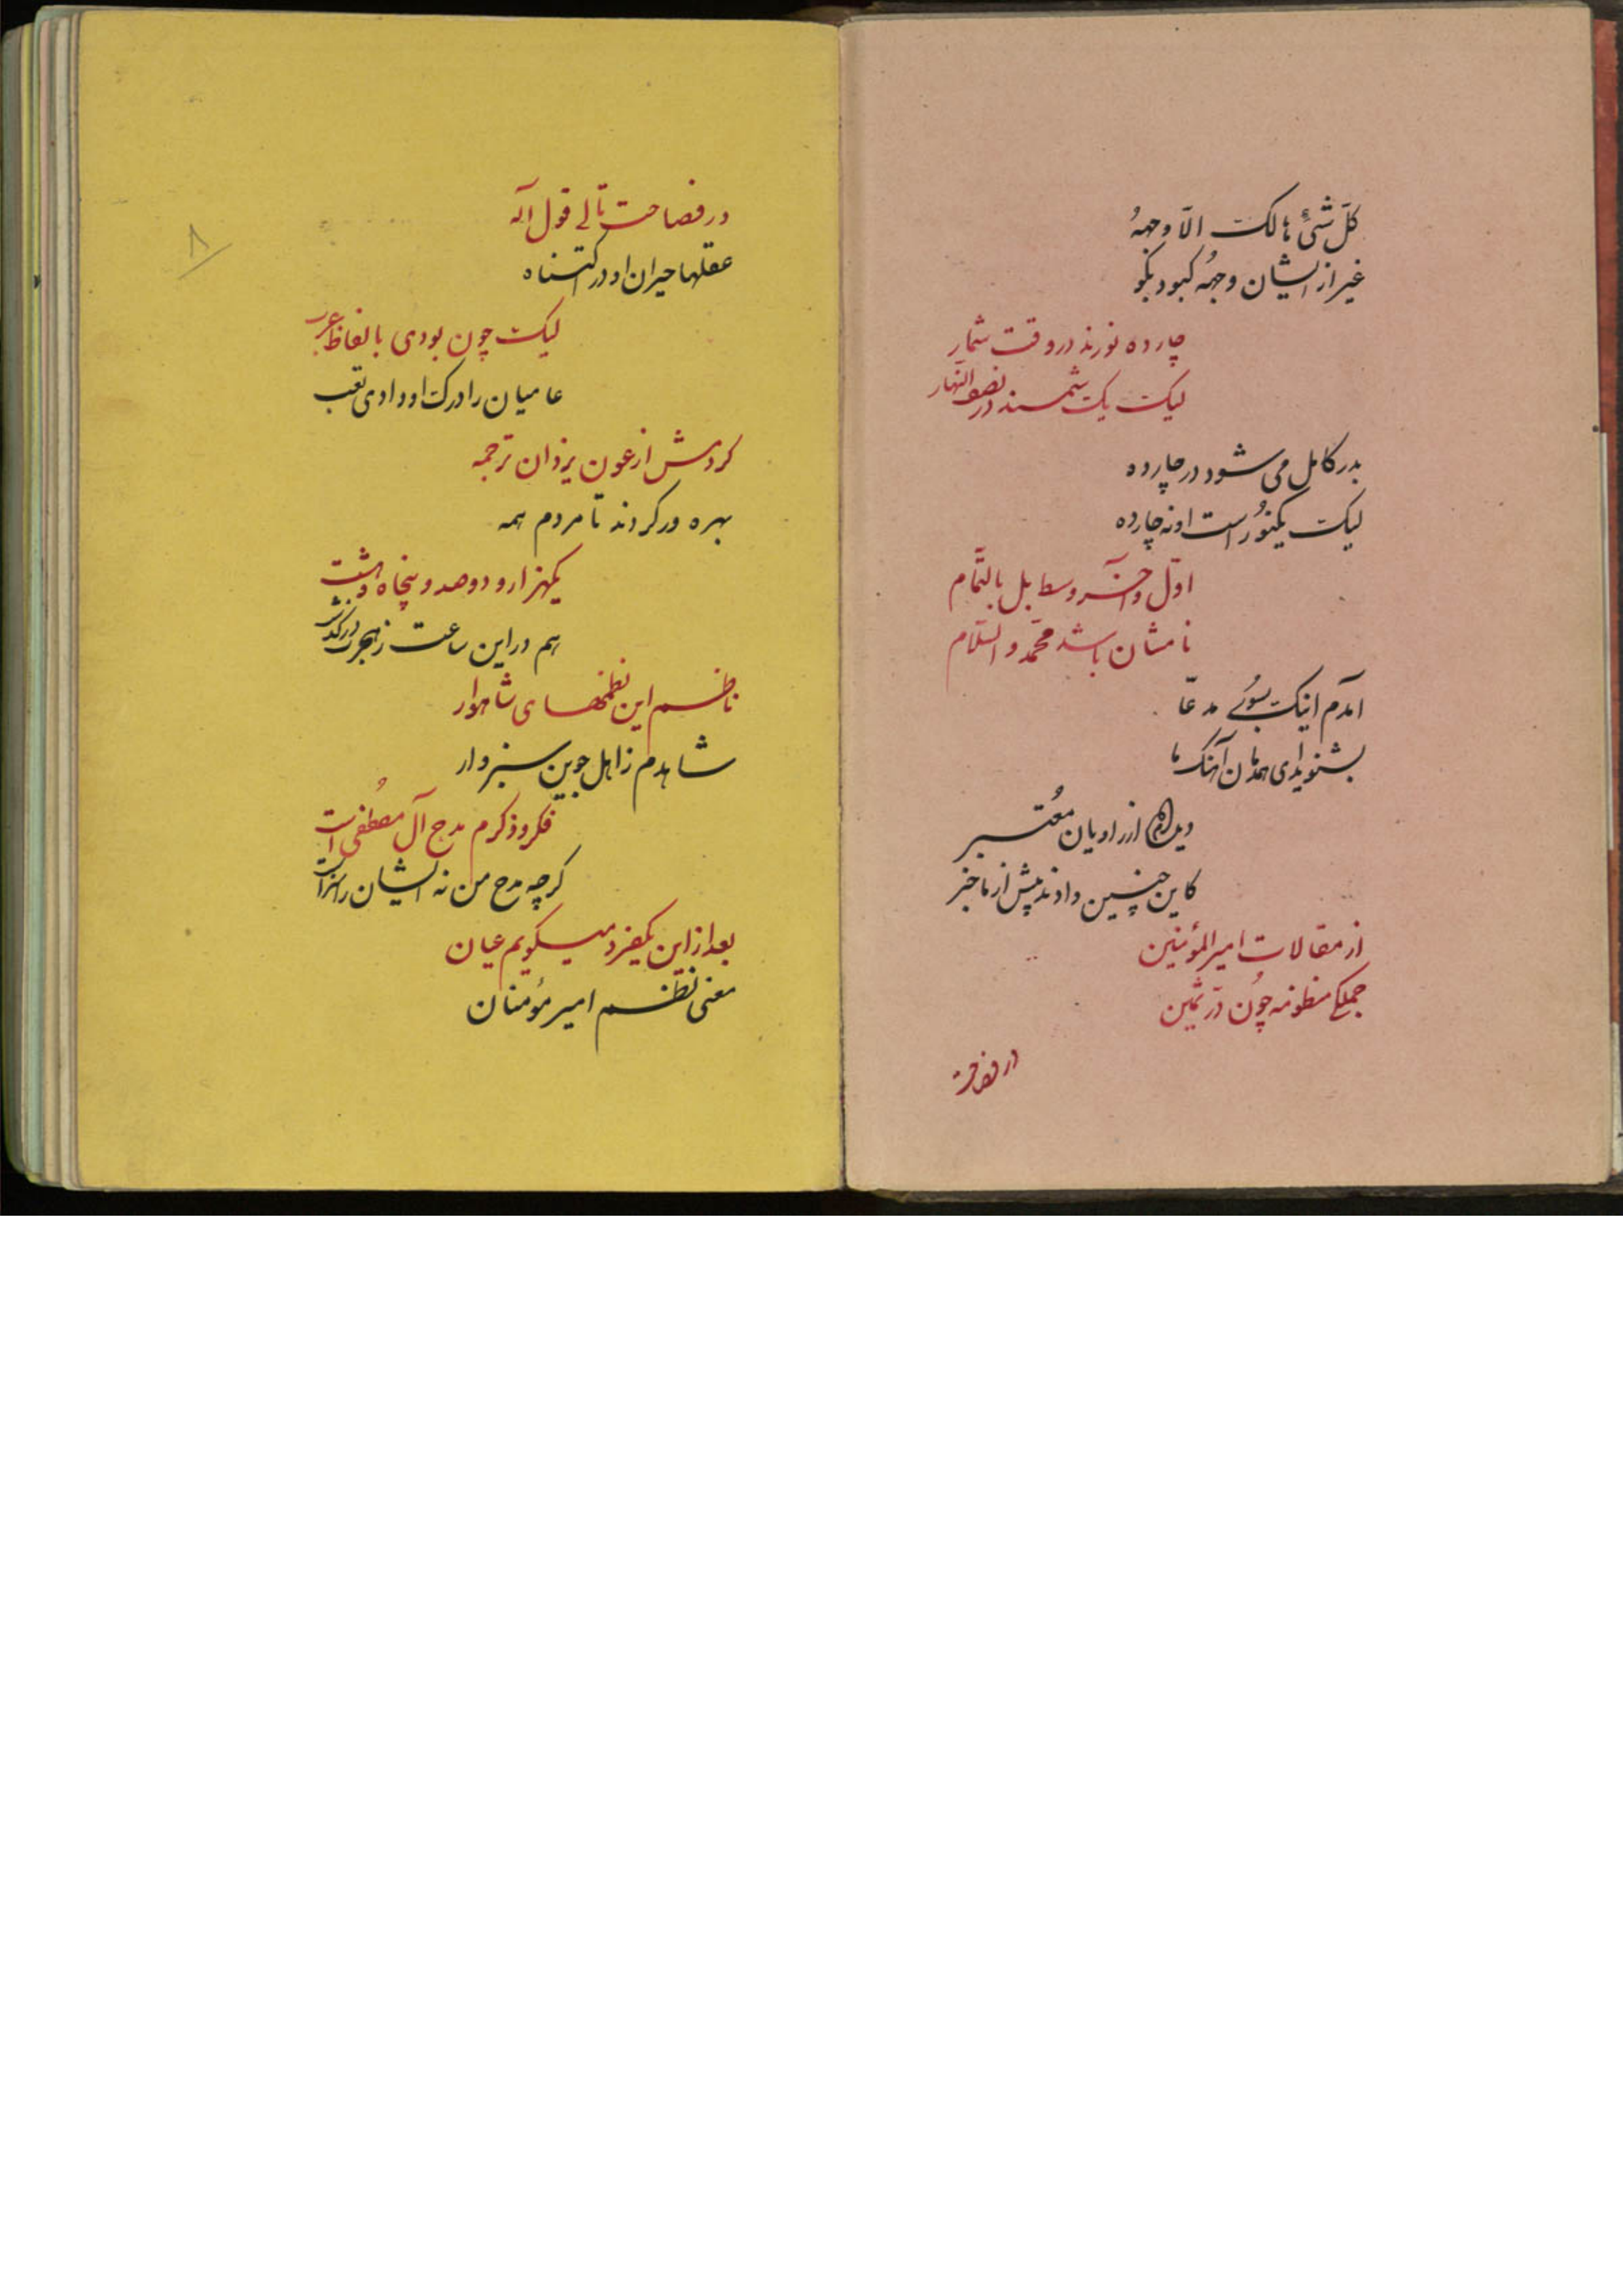 کلّ شیئ هالک الّا وجههُ
غیر از ایشان وجههُ کبود بکو
چارده نورند در وقت شمار
لیک یک شمسند در نصف النّهار
بدر کامل می شود در چارده
لیک یکنوُر است او نه چارده
اوّل و آخر و وسط بل بالتّمام
نامشان باشد محمّد و السّلام
آمدم اینک بسُوی مدعّا
بشنوید ای همدمان آهنک ما
دیده‌ام از راویان معُتبر
کاین چنین دادند پیش از ما خبر
از مقالات امیر المؤمنین
جملکی منظومه چوُن درّ ثمین
در فصاحت
در فصاحت تالی قول آله
عقلها حیران او در اکتناه
لیک چون بودی بالفاظ عرب
عامیان را درک او دادی تعب
کردمش از عون یزدان ترجمه
بهره ور کردند تا مردم همه
یکهزار و دوصد و پنجاه و هشت
هم در این ساعت ز هجرت درکذشت
ناظم این نظمهای شاهوار
شاهدم ز اهل جوین سبزوار
فکر و ذکرم مدح آل مصُطفی است
کرچه مدح من نه ایشان را سزاست
بعد از این یکفرد میکویم عیان
معنی نظم امیر مؤمنان
۸